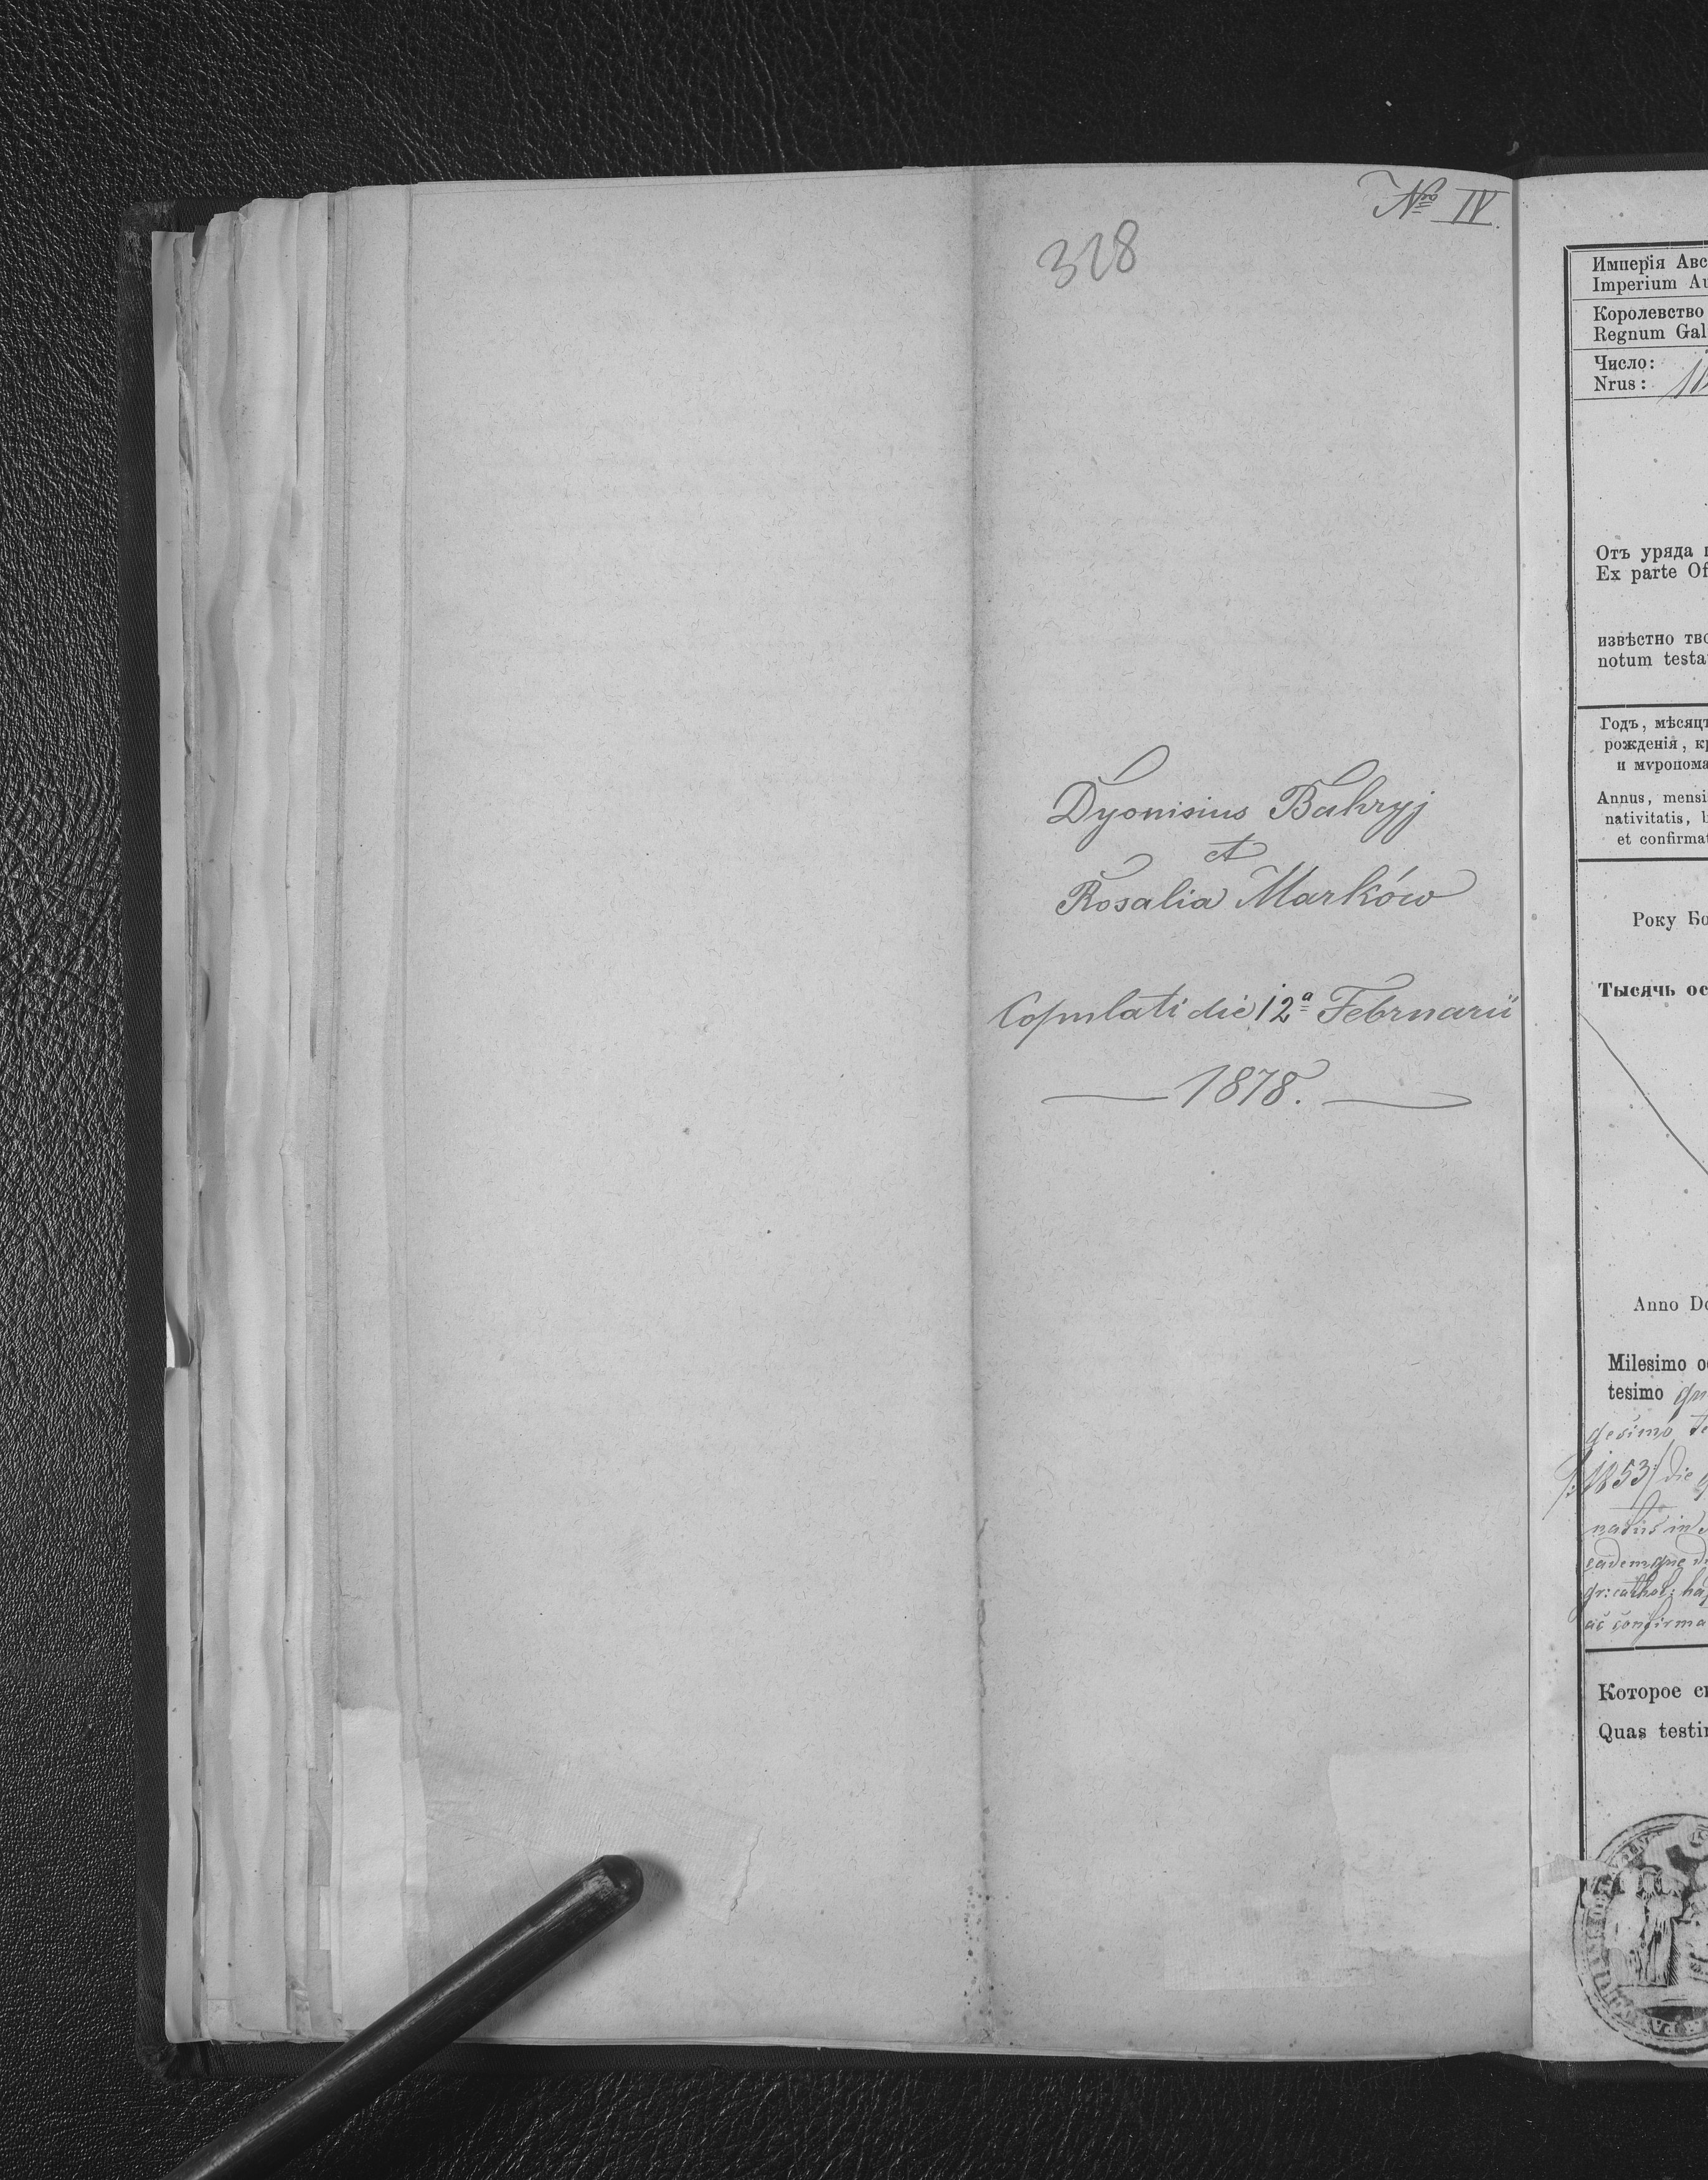 Nro IV.
328
Dyonisius Bahryj
et
Rosalia Marków
Copulati die 12a Februarii
1878.
Имперія Авс
Imperium Au
Королевство
Regnum Gal
Число:
Nrus:
Отъ уряда
Ex parte Of
извѣстно тво
notum testa
Годъ, мѣсяцъ
рожденія, кр
и мѵропома
Annus, mensi
nativitatis,
et confirmat
Року Бо
Тысячь ос
Anno Do
Milesimo oc
tesimo qui
gesimo te
1853 die
natus in
eademque di
gr: cathol: bap
ac confirma
Которое св
Quas testi